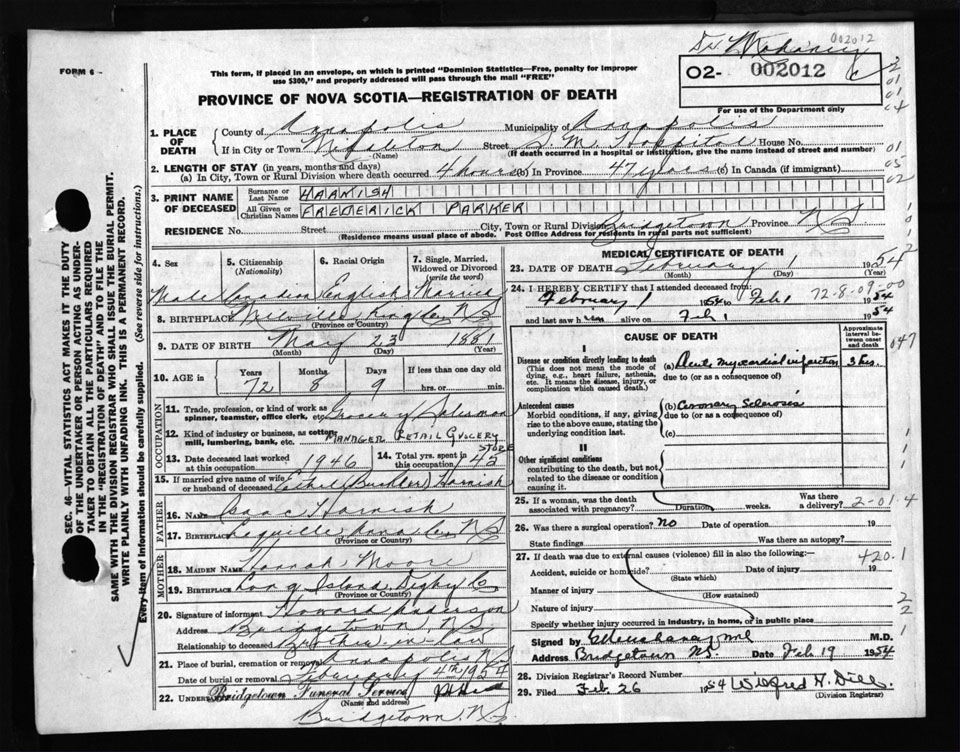 002012
FORM 6
This form, if placed in an envelope, on which is printed "Dominion Statistics—Free, penalty for improper
use $300," and properly addressed will pass through the mail "FREE"
02- 002012
For use of the Department only
PROVINCE OF NOVA SCOTIA—REGISTRATION OF DEATH
1. PLACE OF DEATH
County of Annapolis Municipality of Annapolis
If in City or Town Street S. M. Hospital House No.
(Name) (If death occurred in a hospital or institution, give the name instead of street and number)
2. LENGTH OF STAY (in years, months and days)
(a) In City, Town or Rural Division where death occurred 4 hours (b) In Province 47 years (c) In Canada (if immigrant)
3. PRINT NAME OF DECEASED
Surname or Last Name HARNISH
All Given or Christian Names FREDERICK PARKER
RESIDENCE No. Street City, Town or Rural Division Bridgetown Province NS
(Residence means usual place of abode. Post Office Address for residents in rural parts not sufficient)
4. Sex Male
5. Citizenship (Nationality) Canadian
6. Racial Origin English
7. Single, Married, Widowed or Divorced (write the word) Married
8. BIRTHPLACE Melville Kings NS
(Province or Country)
9. DATE OF BIRTH May 23 1881
(Month) (Day) (Year)
10. AGE in Years Months Days If less than one day old
72 8 9 hrs. or min.
OCCUPATION
11. Trade, profession, or kind of work as spinner, teamster, office clerk, etc. Grocery Salesman
12. Kind of industry or business, as cotton mill, lumbering, bank, etc. MANAGER RETAIL GROCERY STORE
13. Date deceased last worked at this occupation 1946
14. Total yrs. spent in this occupation 45
15. If married give name of wife or husband of deceased Ethel Harnish
FATHER
16. NAME Isaac Harnish
17. BIRTHPLACE Lequille Annapolis NS
(Province or Country)
MOTHER
18. MAIDEN NAME Hannah Moore
19. BIRTHPLACE Long Island Digby Co
(Province or Country)
20. Signature of informant Howard Anderson
Address Bridgetown NS
Relationship to deceased Brother-in-law
21. Place of burial, cremation or removal Annapolis NS
Date of burial or removal February 4th 1954
22. UNDERTAKER Bridgetown Funeral Service
(Name and address)
Bridgetown NS
MEDICAL CERTIFICATE OF DEATH
23. DATE OF DEATH February 1 1954
(Month) (Day) (Year)
24. I HEREBY CERTIFY that I attended deceased from:
February 1 1954 to Feb 1 1954
72-8-09-00
and last saw him alive on Feb 1 1954
CAUSE OF DEATH
Approximate interval between onset and death
I
Disease or condition directly leading to death
(This does not mean the mode of dying, e.g., heart failure, asthenia, etc. It means the disease, injury, or complication which caused death.)
(a) Acute myocardial infarction 3 hrs.
due to (or as a consequence of)
Antecedent causes
Morbid conditions, if any, giving rise to the above cause, stating the underlying condition last.
(b) Coronary Sclerosis
due to (or as a consequence of)
(c)
II
Other significant conditions
contributing to the death, but not related to the disease or condition causing it.
25. If a woman, was the death associated with pregnancy? Duration weeks. Was there a delivery?
2-01-4
26. Was there a surgical operation? No Date of operation 19
State findings Was there an autopsy?
27. If death was due to external causes (violence) fill in also the following:—
420.1
Accident, suicide or homicide? Date of injury 19
(State which)
Manner of injury
(How sustained)
Nature of injury
Specify whether injury occurred in industry, in home, or in public place
Signed by M.D.
Address Bridgetown NS. Date Feb 19 1954
28. Division Registrar's Record Number
29. Filed Feb 26 1954 Wilfred H. Dill
(Division Registrar)
SEC. 46—VITAL STATISTICS ACT MAKES IT THE DUTY
OF THE UNDERTAKER OR PERSON ACTING AS UNDER-
TAKER TO OBTAIN ALL THE PARTICULARS REQUIRED
IN THE "REGISTRATION OF DEATH" AND TO FILE THE
SAME WITH THE DIVISION REGISTRAR WHO SHALL ISSUE THE BURIAL PERMIT.
WRITE PLAINLY WITH UNFADING INK. THIS IS A PERMANENT RECORD.
Every item of information should be carefully supplied. (See reverse side for instructions.)